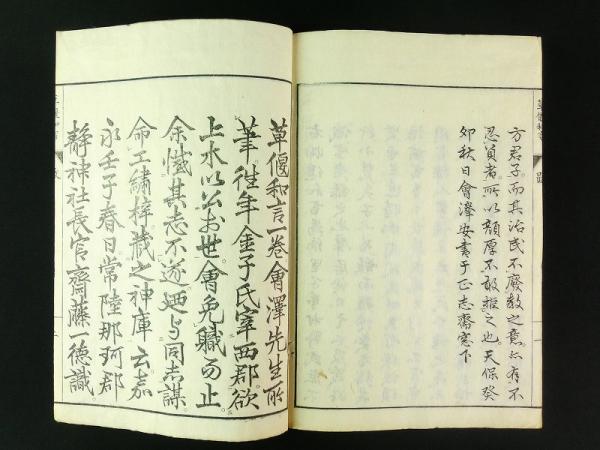 方君子而其治民不廢教之意亦有不
忍負者所以顏厚不敢捉之也天保癸
卯秋日會澤安書于正志齋窓下
草偃和言
草偃和言一卷會澤先生所
筆往年金子氏宰西郡欲
上木以公于世會免職而止
余慨其志不遂廼與同志謀
命工繡梓藏之神庫云嘉
永壬子春日常陸那珂郡
靜神社長官齋藤一德識